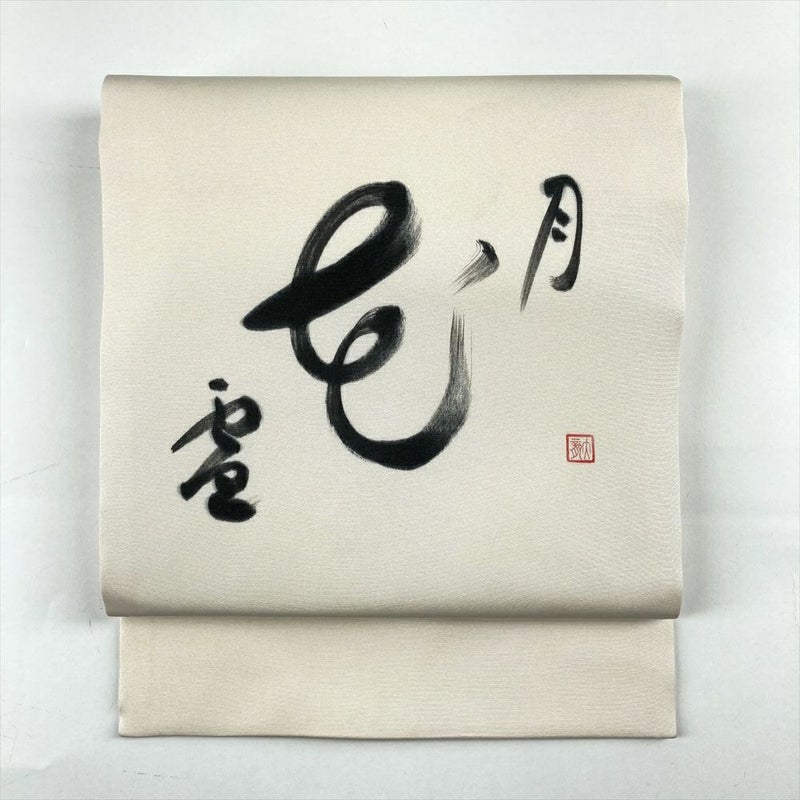 月
花
雪